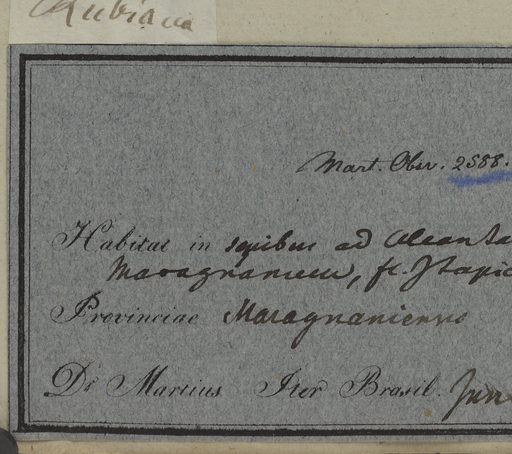 Rubiacea
Mart. Obser. 2588.
Habitat in sepibus ad Alcanta
Maragnanieu, fl. Itapic
Provinciae Maragnaniensis
Dr Martius Iter Brasil. Jun